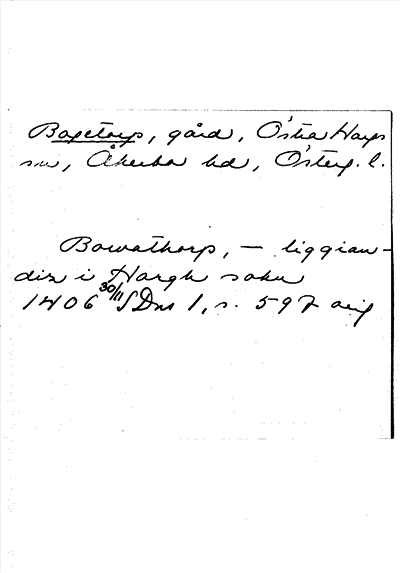 Boxetorp, gård, Östra Hargs
sn, Åkerbo hd, Österg. l.
Bowathorp, — liggian-
dis i Hargh sokn
1406 30/11 SDns 1, s. 597 orig